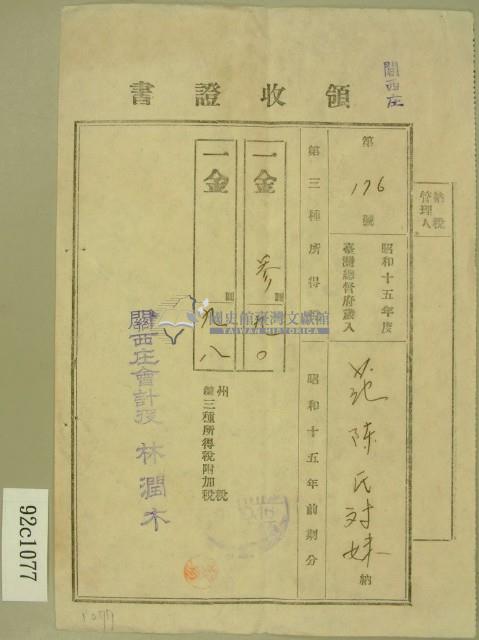 關西庄
領收證書
納稅管理人
第176號
昭和十五年度
臺灣總督府歲入
范陳氏対妹 納
第三種所得稅
昭和十五年前期分
一金
一金
州稅
第三種所得稅附加稅
關西庄會計役 林潤木
國史館臺灣文獻館
TAIWAN HISTORICA
92c1077